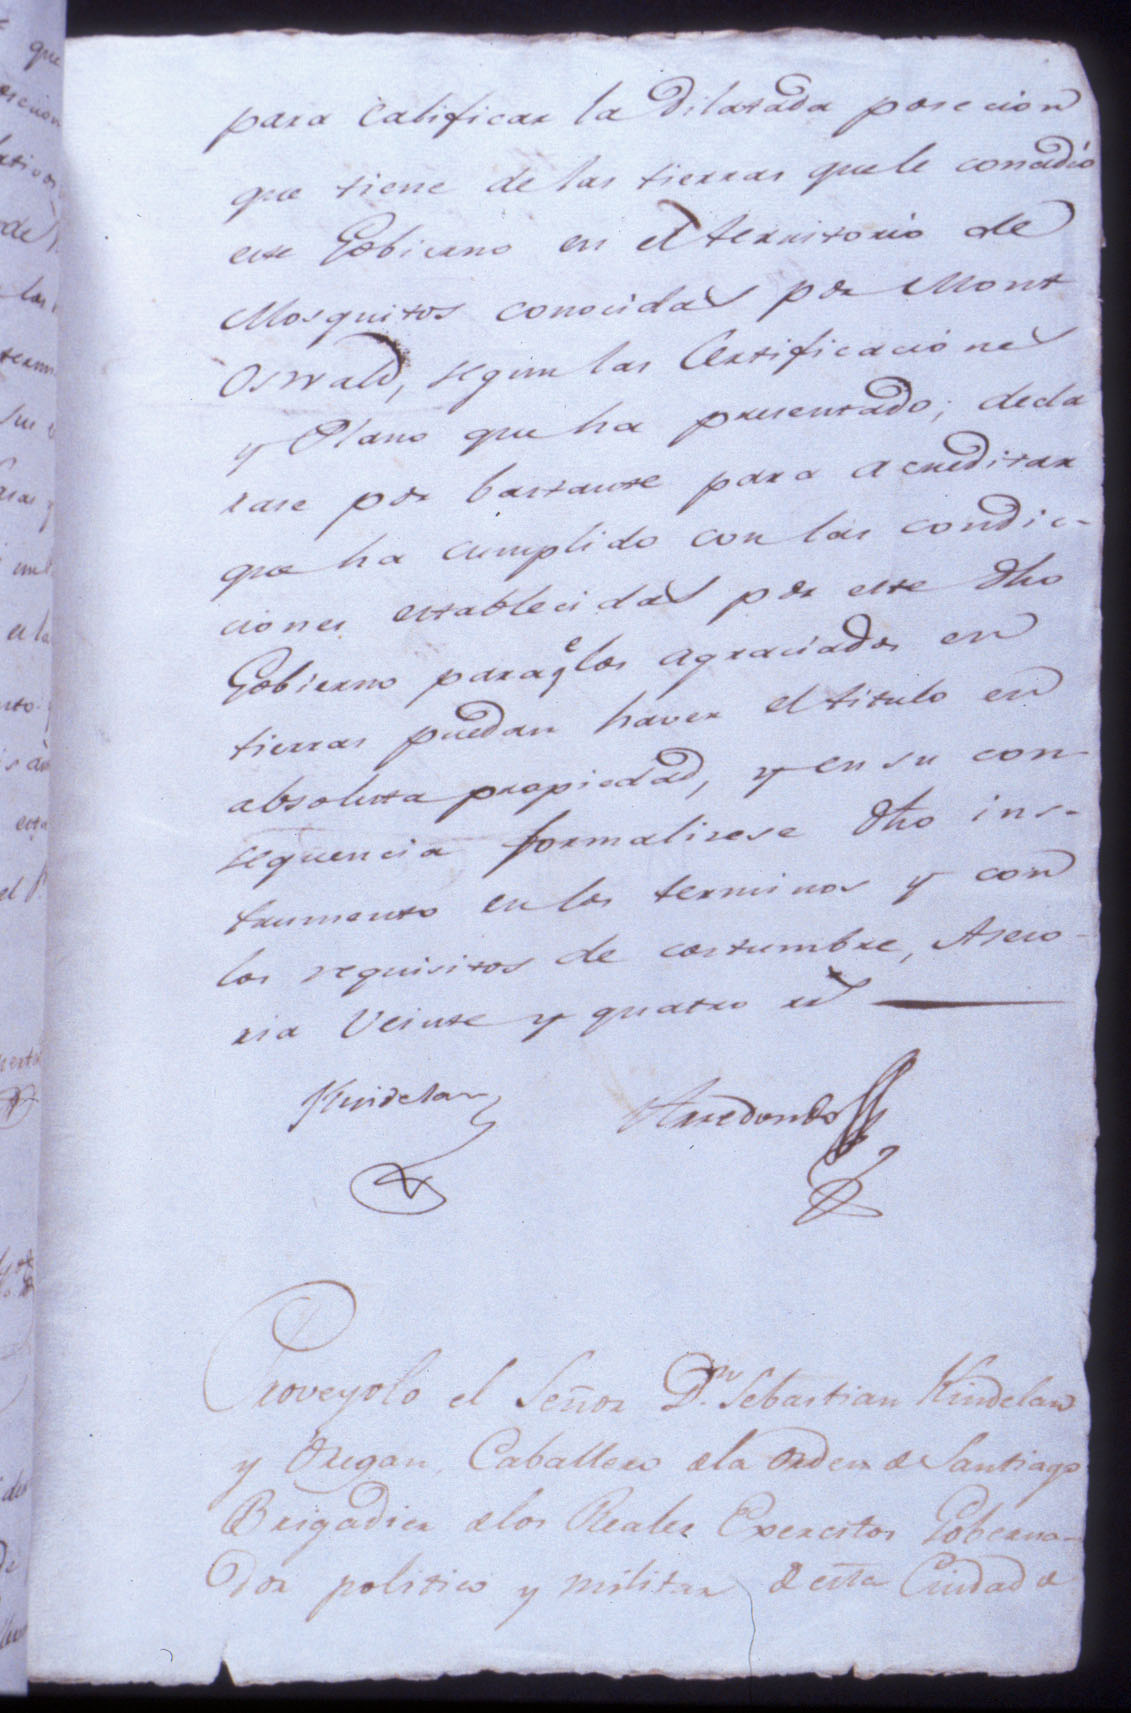 para calificar la dilatada posecion
que tiene de las tierras que le concedió
este Gobierno en el territorio de
Mosquitos conocidas por Mont
Oswald, segun las Certificaciones
y Plano que ha presentado; decla
rase por bastante para acreditar
que ha cumplido con las condic-
ciones establecidas por este dho
Gobierno para qe los agraciados en
tierras puedan haver el titulo en
absoluta propiedad, y en su con-
sequencia formalizese dho ins-
trumento en los terminos y con
los requisitos de costumbre, Aseso-
ria Veinte y quatro rs
Kindelan Arredondo
Proveyolo el Señor Dn. Sebastian Kindelan
y Oregan, Caballero de la Orden de Santiago
Brigadier de los Reales Exercitos Goberna-
dor politico y militar de esta Ciudad de